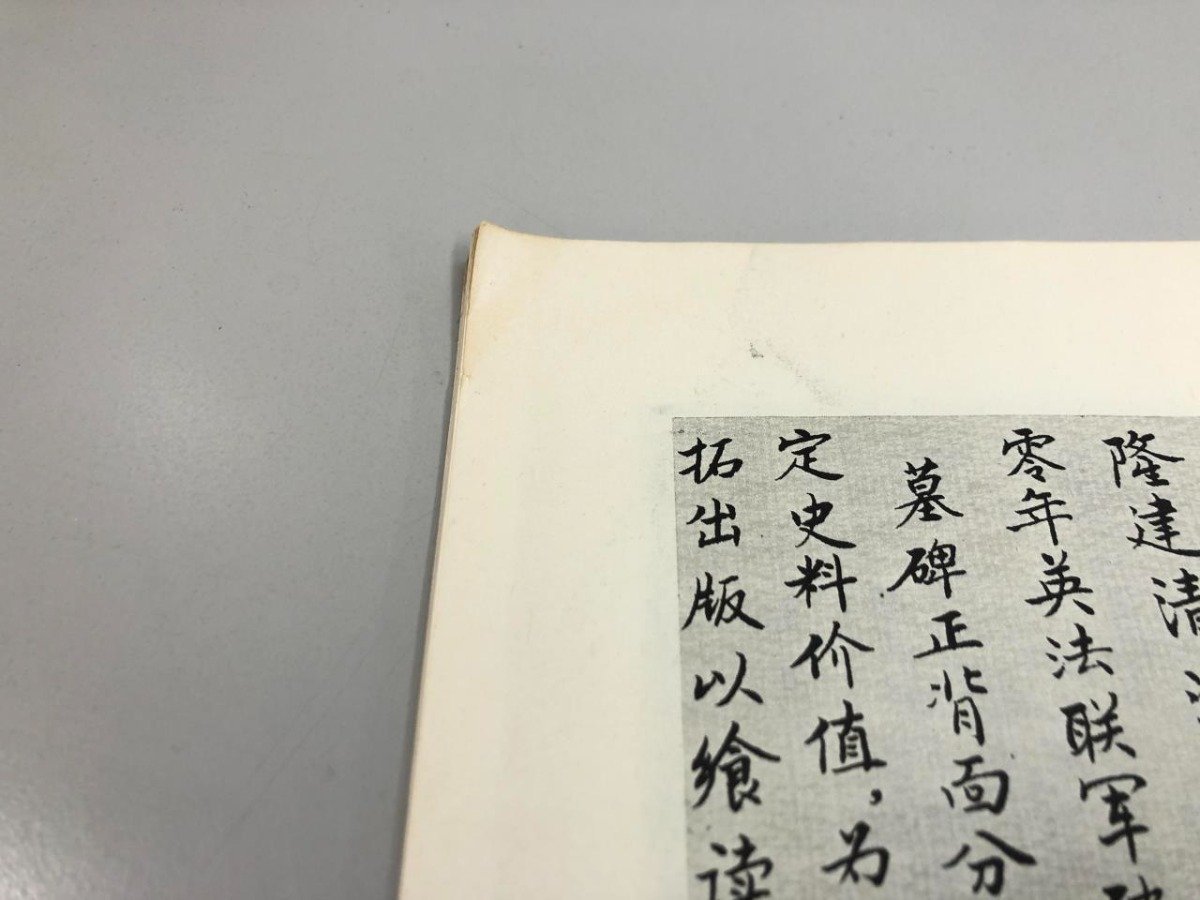 隆建清
零年英法联军
墓碑正背面分
定史料价值，为
拓出版以飨读